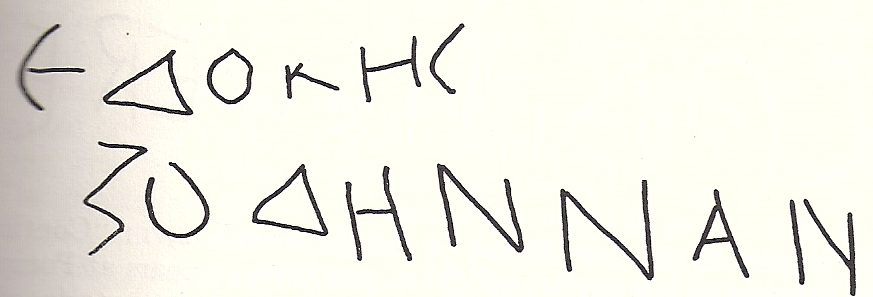 ЄΔΟΚΗC
ΞΟΔΗΝΝΑΝ